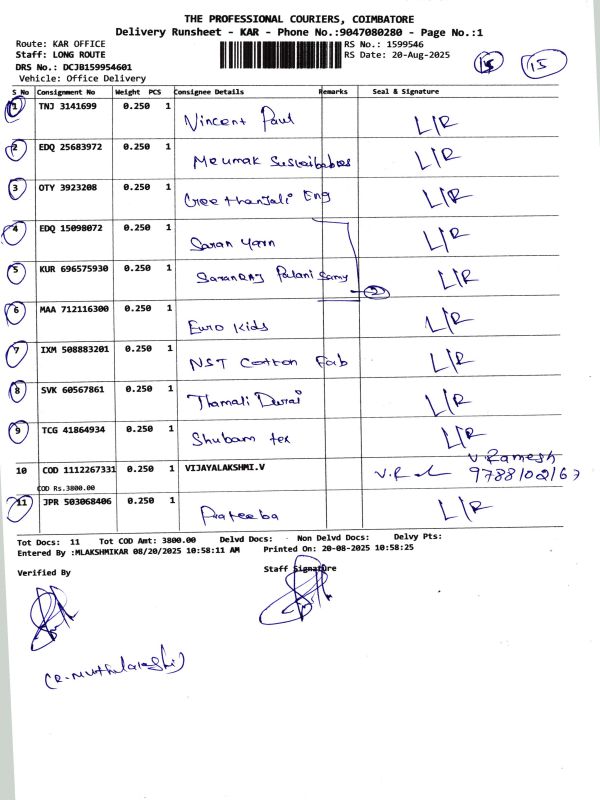 THE PROFESSIONAL COURIERS, COIMBATORE
Delivery Runsheet - KAR - Phone No.:9047080280 - Page No.:1
Route: KAR OFFICE
Staff: LONG ROUTE
DRS No.: DCJB159954601
Vehicle: Office Delivery
RS No.: 1599546
RS Date: 20-Aug-2025
15
S No Consignment No Weight PCS Consignee Details Remarks Seal & Signature
1 TNJ 3141699 0.250 1 Vincent Paul L/R
2 EDQ 25683972 0.250 1 Meumak L/R
3 OTY 3923208 0.250 1 Geethanjali Eng L/R
4 EDQ 15098072 0.250 1 Saran yarn L/R
5 KUR 696575930 0.250 1 Saranraj Palani Samy 2 L/R
6 MAA 712116300 0.250 1 Euro Kids L/R
7 IXM 508883201 0.250 1 NST Cotton Fab L/R
8 SVK 60567861 0.250 1 Thamali Durai L/R
9 TCG 41864934 0.250 1 Shubam tex L/R
10 COD 1112267331 0.250 1 VIJAYALAKSHMI.V V Ramesh
COD Rs.3800.00 9788102167
11 JPR 503068406 0.250 1 Prateeba L/R
Tot Docs: 11 Tot COD Amt: 3800.00 Delvd Docs: Non Delvd Docs: Delvy Pts:
Entered By :MLAKSHMIKAR 08/20/2025 10:58:11 AM Printed On: 20-08-2025 10:58:25
Verified By
Staff Signature
(R. Muthulakshmi)